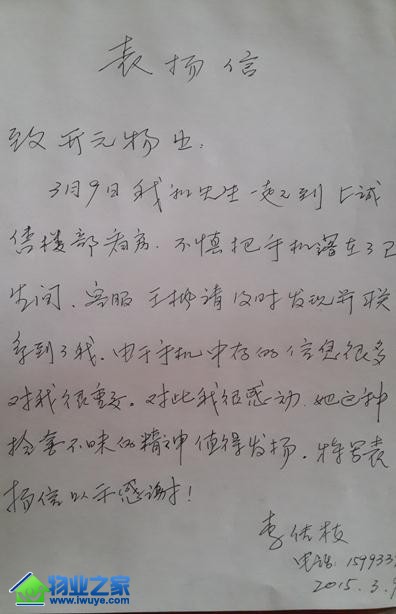 表扬信
致开元物业:
3月9日我和先生一起到上诚
售楼部看房.不慎把手机落在了卫
生间.客服王 请及时发现并联
系到了我.由于手机中存的信息很多
对我很重要.对此我很感动.她这种
拾金不昧的精神值得发扬.特写表
扬信以示感谢!
李 枝
电话:159933
2015.3.9
物业之家
www.iwuye.com